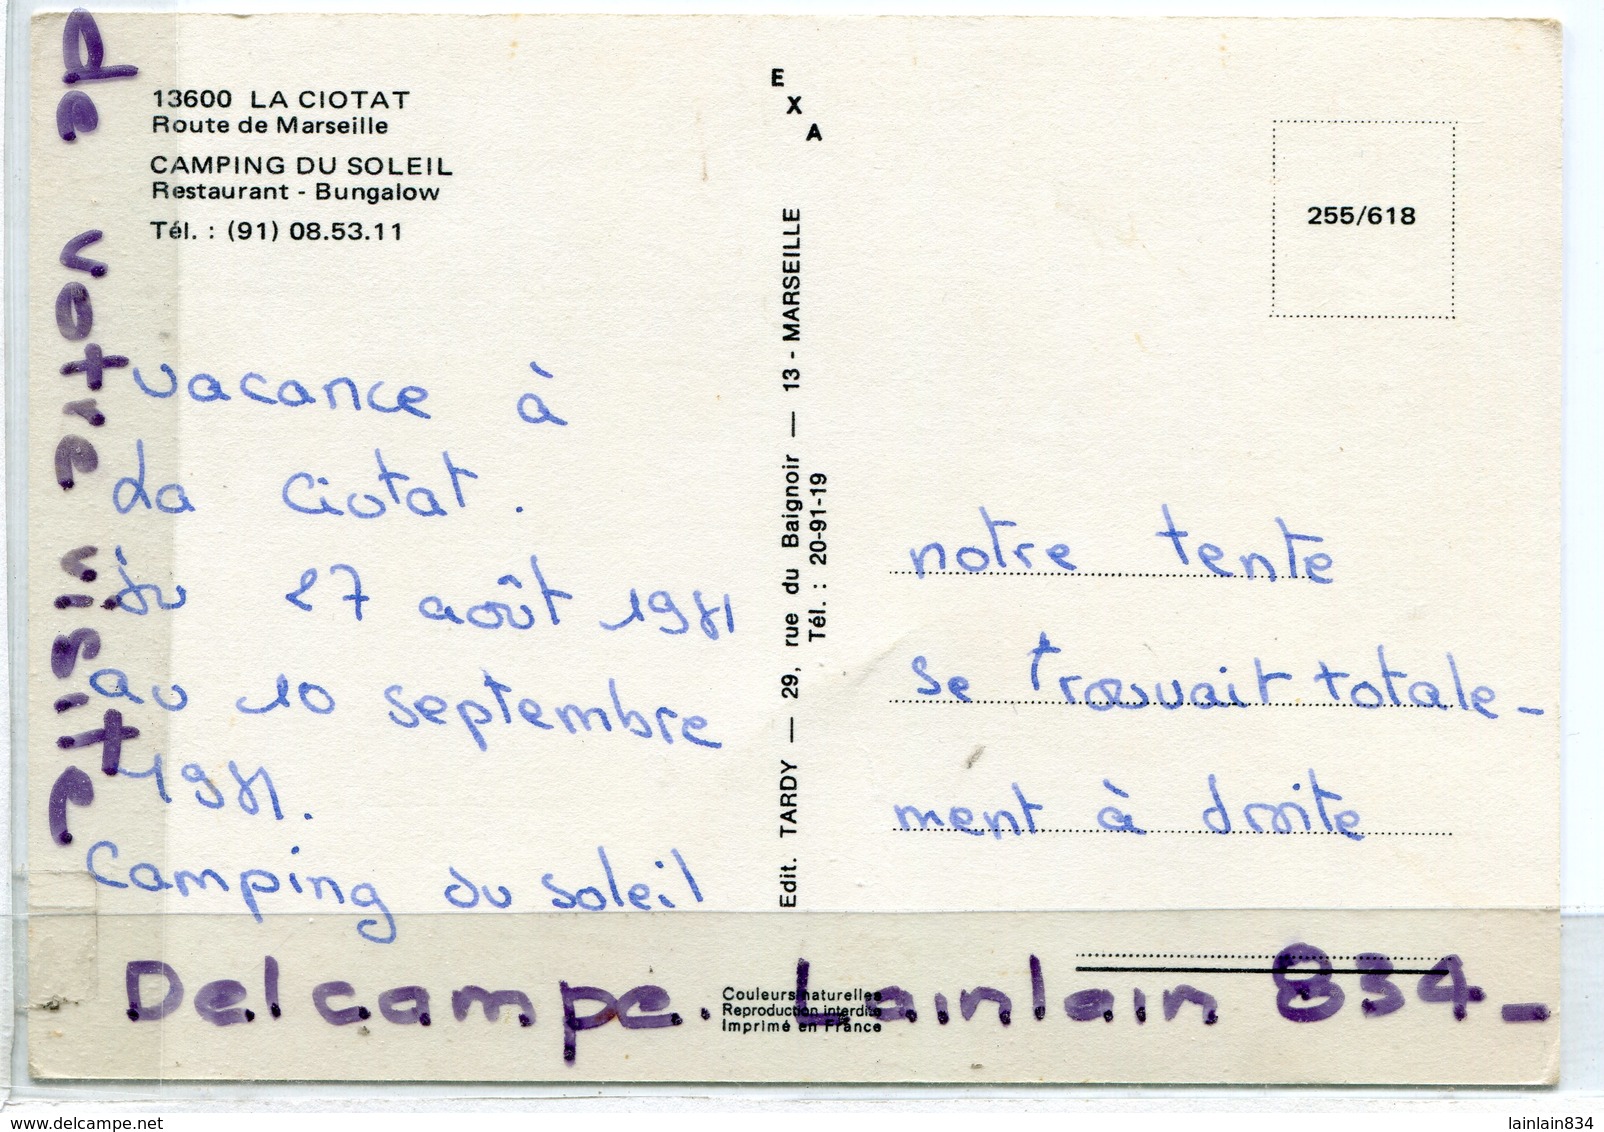 de votre visite
13600 LA CIOTAT
Route de Marseille
CAMPING DU SOLEIL
Restaurant - Bungalow
Tél. : (91) 08.53.11
vacance à
La Ciotat.
du 27 août 1981
au 10 septembre
1981.
Camping du soleil
E
X
A
Edit. TARDY — 29, rue du Baignoir — 13 - MARSEILLE
Tél. : 20-91-19
255/618
notre tente
se trouvait totale-
ment à droite
Couleurs naturelles
Reproduction interdite
Imprimé en France
Delcampe. Lainlain 834-
www.delcampe.net
lainlain834